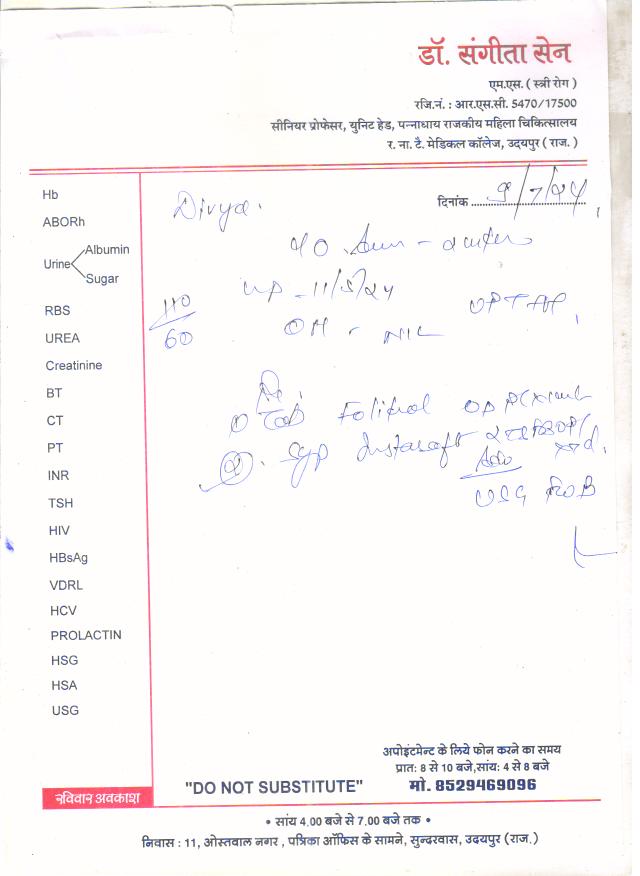 डॉ. संगीता सेन
एम.एस. ( स्त्री रोग )
रजि.नं. : आर.एस.सी. 5470/17500
सीनियर प्रोफेसर, युनिट हेड, पन्नाधाय राजकीय महिला चिकित्सालय
र. ना. टै. मेडिकल कॉलेज, उदयपुर ( राज. )
दिनांक 9/7/24
Divya.
Hb
ABORh
Urine Albumin
Sugar
110/60
LMP - 11/5/24
UPT
OH - NIL
RBS
UREA
Creatinine
BT
CT
PT
INR
TSH
HIV
HBsAg
VDRL
HCV
PROLACTIN
HSG
HSA
USG
Rx
① Tab OD
②. Syp
Adv
USG
अपोइंटमेन्ट के लिये फोन करने का समय
प्रातः 8 से 10 बजे,सांयः 4 से 8 बजे
"DO NOT SUBSTITUTE" मो. 8529469096
रविवार अवकाश
• सांय 4.00 बजे से 7.00 बजे तक •
निवास : 11, ओस्तवाल नगर , पत्रिका ऑफिस के सामने, सुन्दरवास, उदयपुर (राज.)